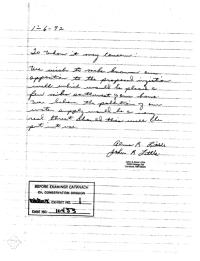 1-6-92
To whom it may concern:
We wish to make known our
opposition to the proposed injection
well which would be placed a
few miles southwest of our home.
We believe the pollution of our
water supply would be a very
real threat should this well be
put in use.
Alma R. Little
John R. Little
BEFORE EXAMINER CATANACH
OIL CONSERVATION DIVISION
EXHIBIT NO. 1
CASE NO.